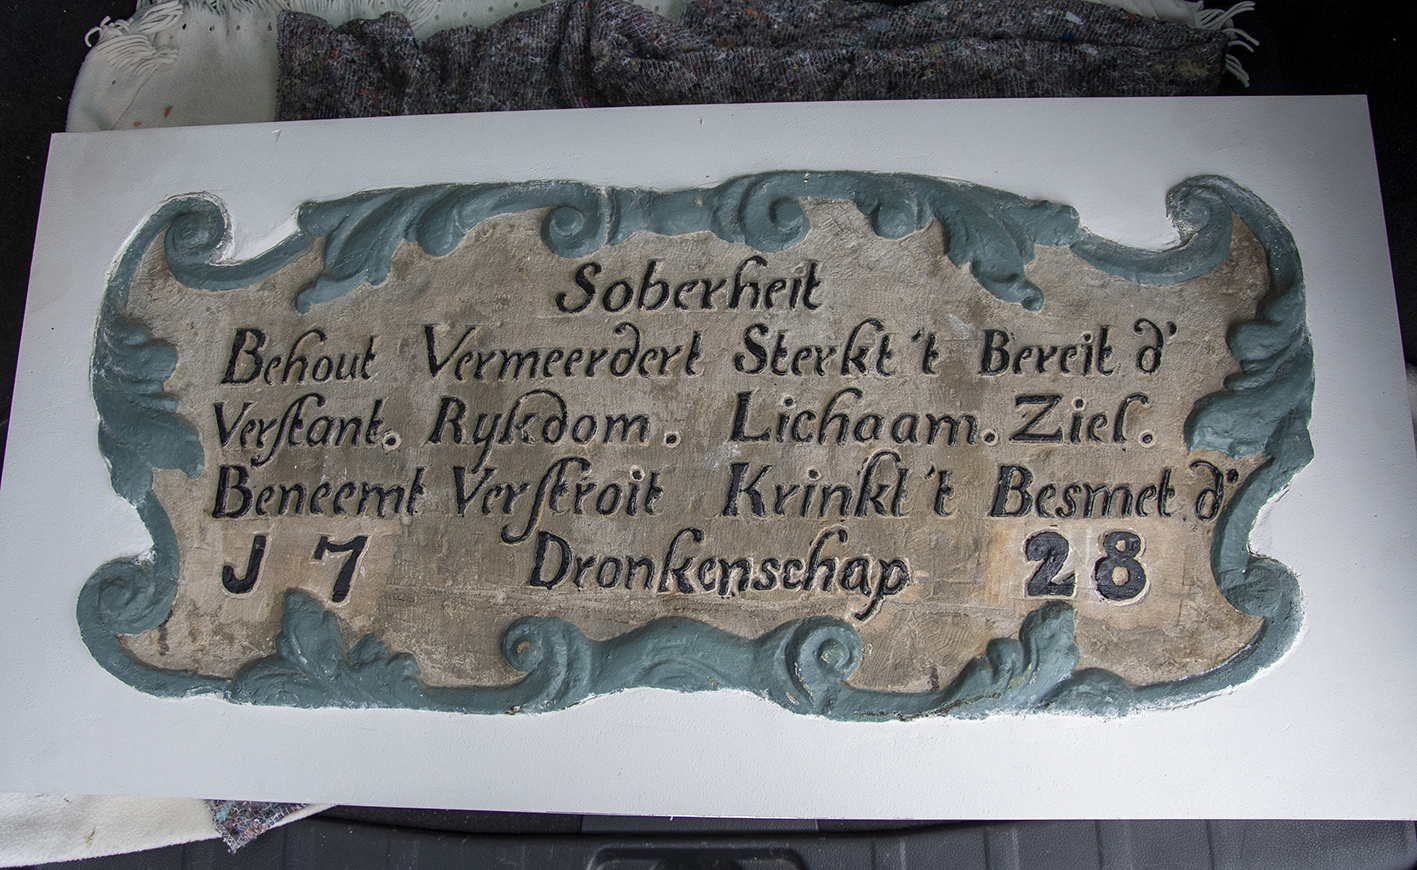 Soberheit
Behout Vermeerdert Sterkt 't Bereit d'
Verstant. Rykdom. Lichaam. Ziel.
Beneemt Verstroit Krinkt 't Besmet d'
J 7 Dronkenschap 28